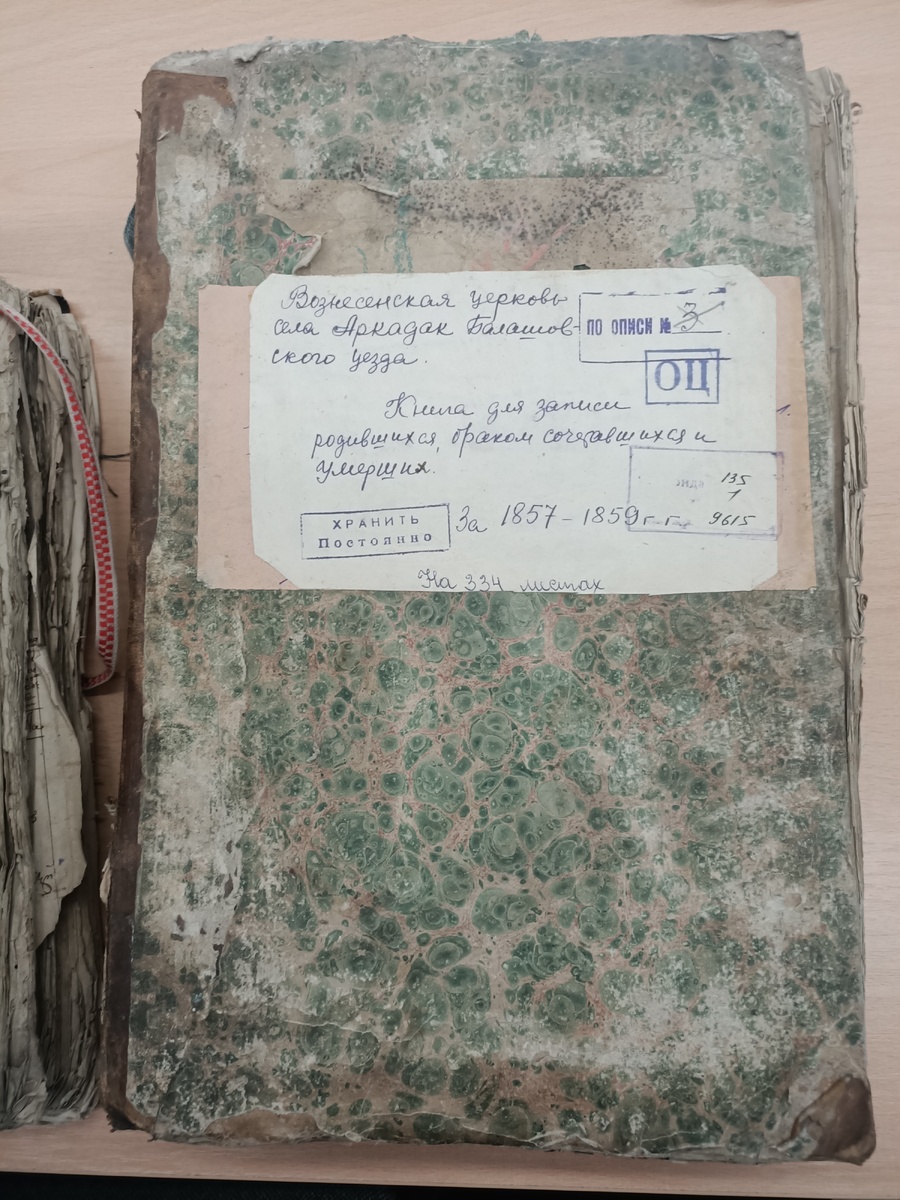 Вознесенская церковь
села Аркадак Балашов-
ского уезда.
ПО ОПИСИ № 3
ОЦ
Книга для записи
родившихся, браком сочетавшихся и
умерших.
135
1
9615
ХРАНИТЬ
Постоянно
За 1857-1859 г.г.
На 334 листах